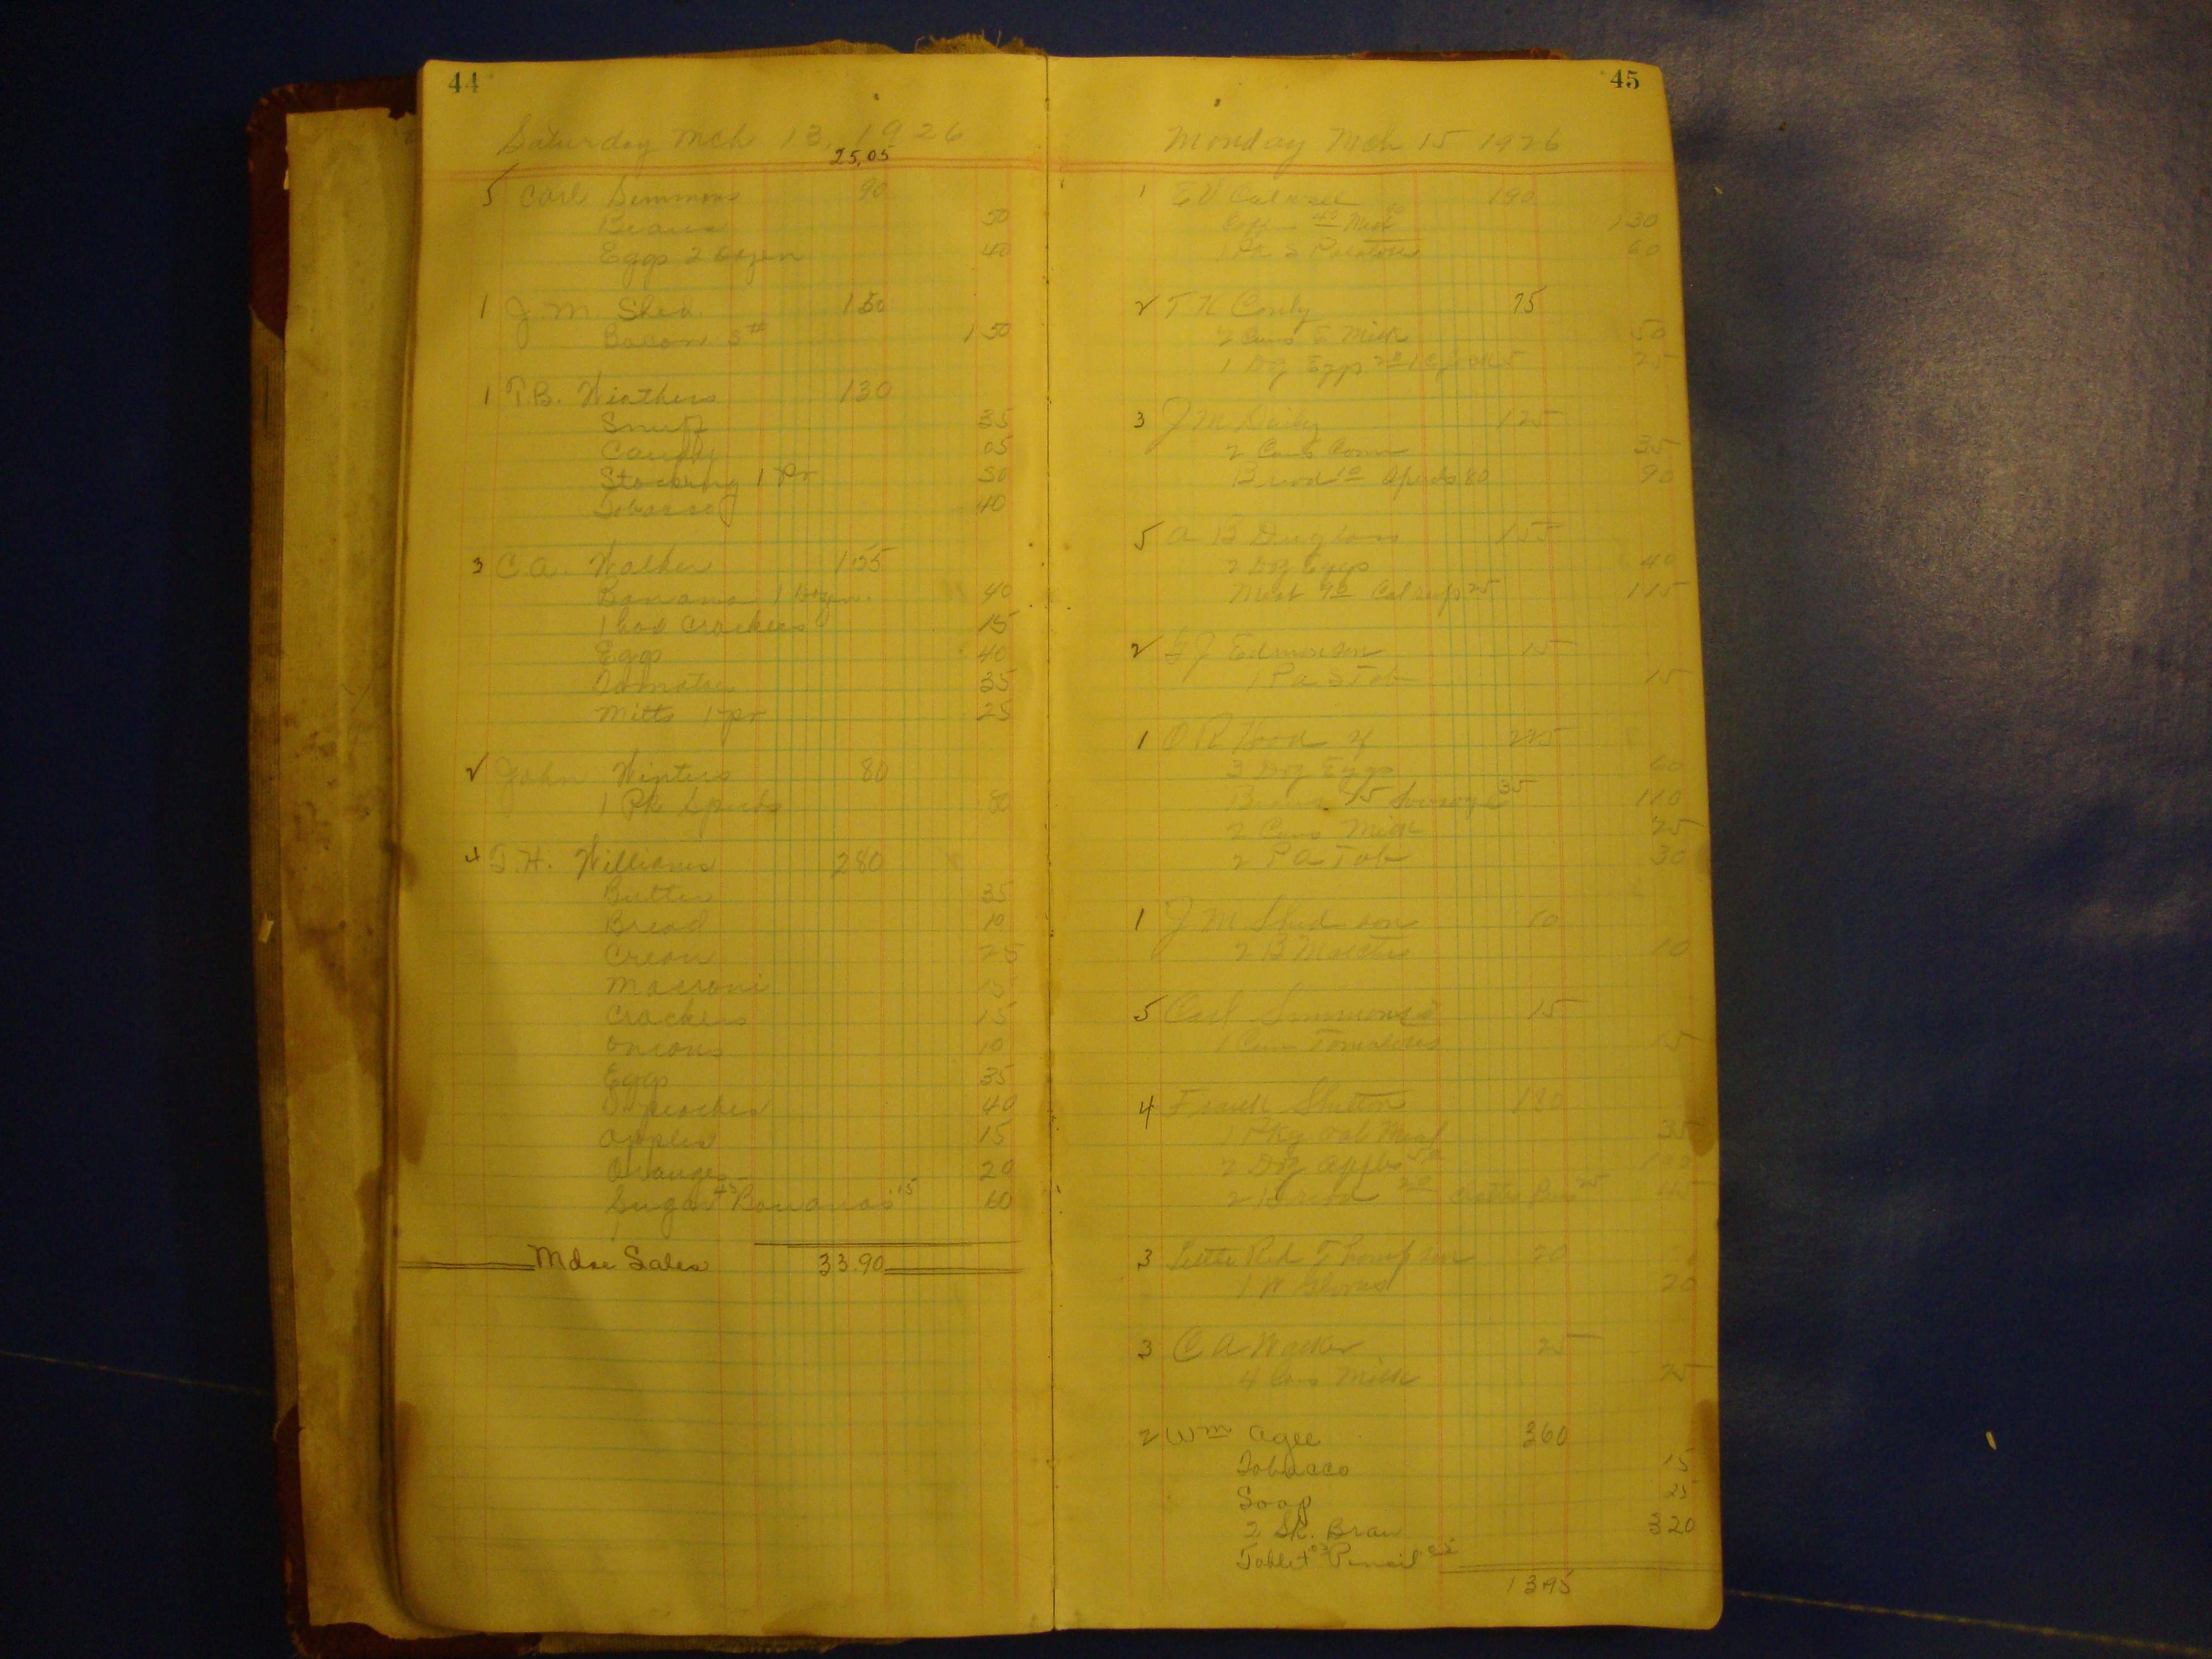 44
Saturday Mch 13, 1926
25.05
5 Carl Simmons 90
Beans 50
Eggs 2 Dozen 40
1 J. M. Shed. 150
Bacon 5# 1 50
1 T.B. Weathers 130
Snuff 35
Candy 05
Stocking 1 Pr 50
Tobacco 40
3 C.A. Walker 155
Banana 1 Dozen. 40
1 box Crackers 15
Eggs 40
Tomatoes 35
Mitts 1 pr 25
2 John Winters 80
1 Pk Spuds 80
4 T.H. Williams 280
Butter 35
Bread 10
Cream 25
Macroni 15
Crackers 15
Onions 10
Eggs 35
D. peaches 40
Apples 15
Oranges 20
Sugar 45 Bananas 15 60
Mdse Sales 33.90
45
Monday Mch 15 1926
1 E V Calwell 190
40 Meat 90 130
Potatoes 60
2 T K Conly 75
2 Cans E Milk 50
1 Doz Eggs 20 5 25
3 J M Daily 125
2 Cans Corn 35
Bread 10 Spuds 80 90
5 A B Duglass 155
2 Doz Eggs 40
Meat 90 25 115
2 Edmonson 15
1 P a Tob 15
1 O R Hood 225
3 Doz Eggs 60
Beans 75 35 110
2 Cans Milk 25
2 P A Tob 30
1 J M Shed son 10
2 B Matches 10
5 Carl Simmons 15
1 Can Tomatoes 15
4 Frank Shelton 180
1 Pkg Oat Meal 35
2 Doz Apples 50 100
2 20 25 45
3 Little Red Thompson 20
1 Pr Gloves 20
3 C A Walker 25
4 Cans Milk 25
2 Wm Agee 360
Tobacco 15
Soap 25
2 Sk. Bran 320
Tablet 05 Pencil 05
1395